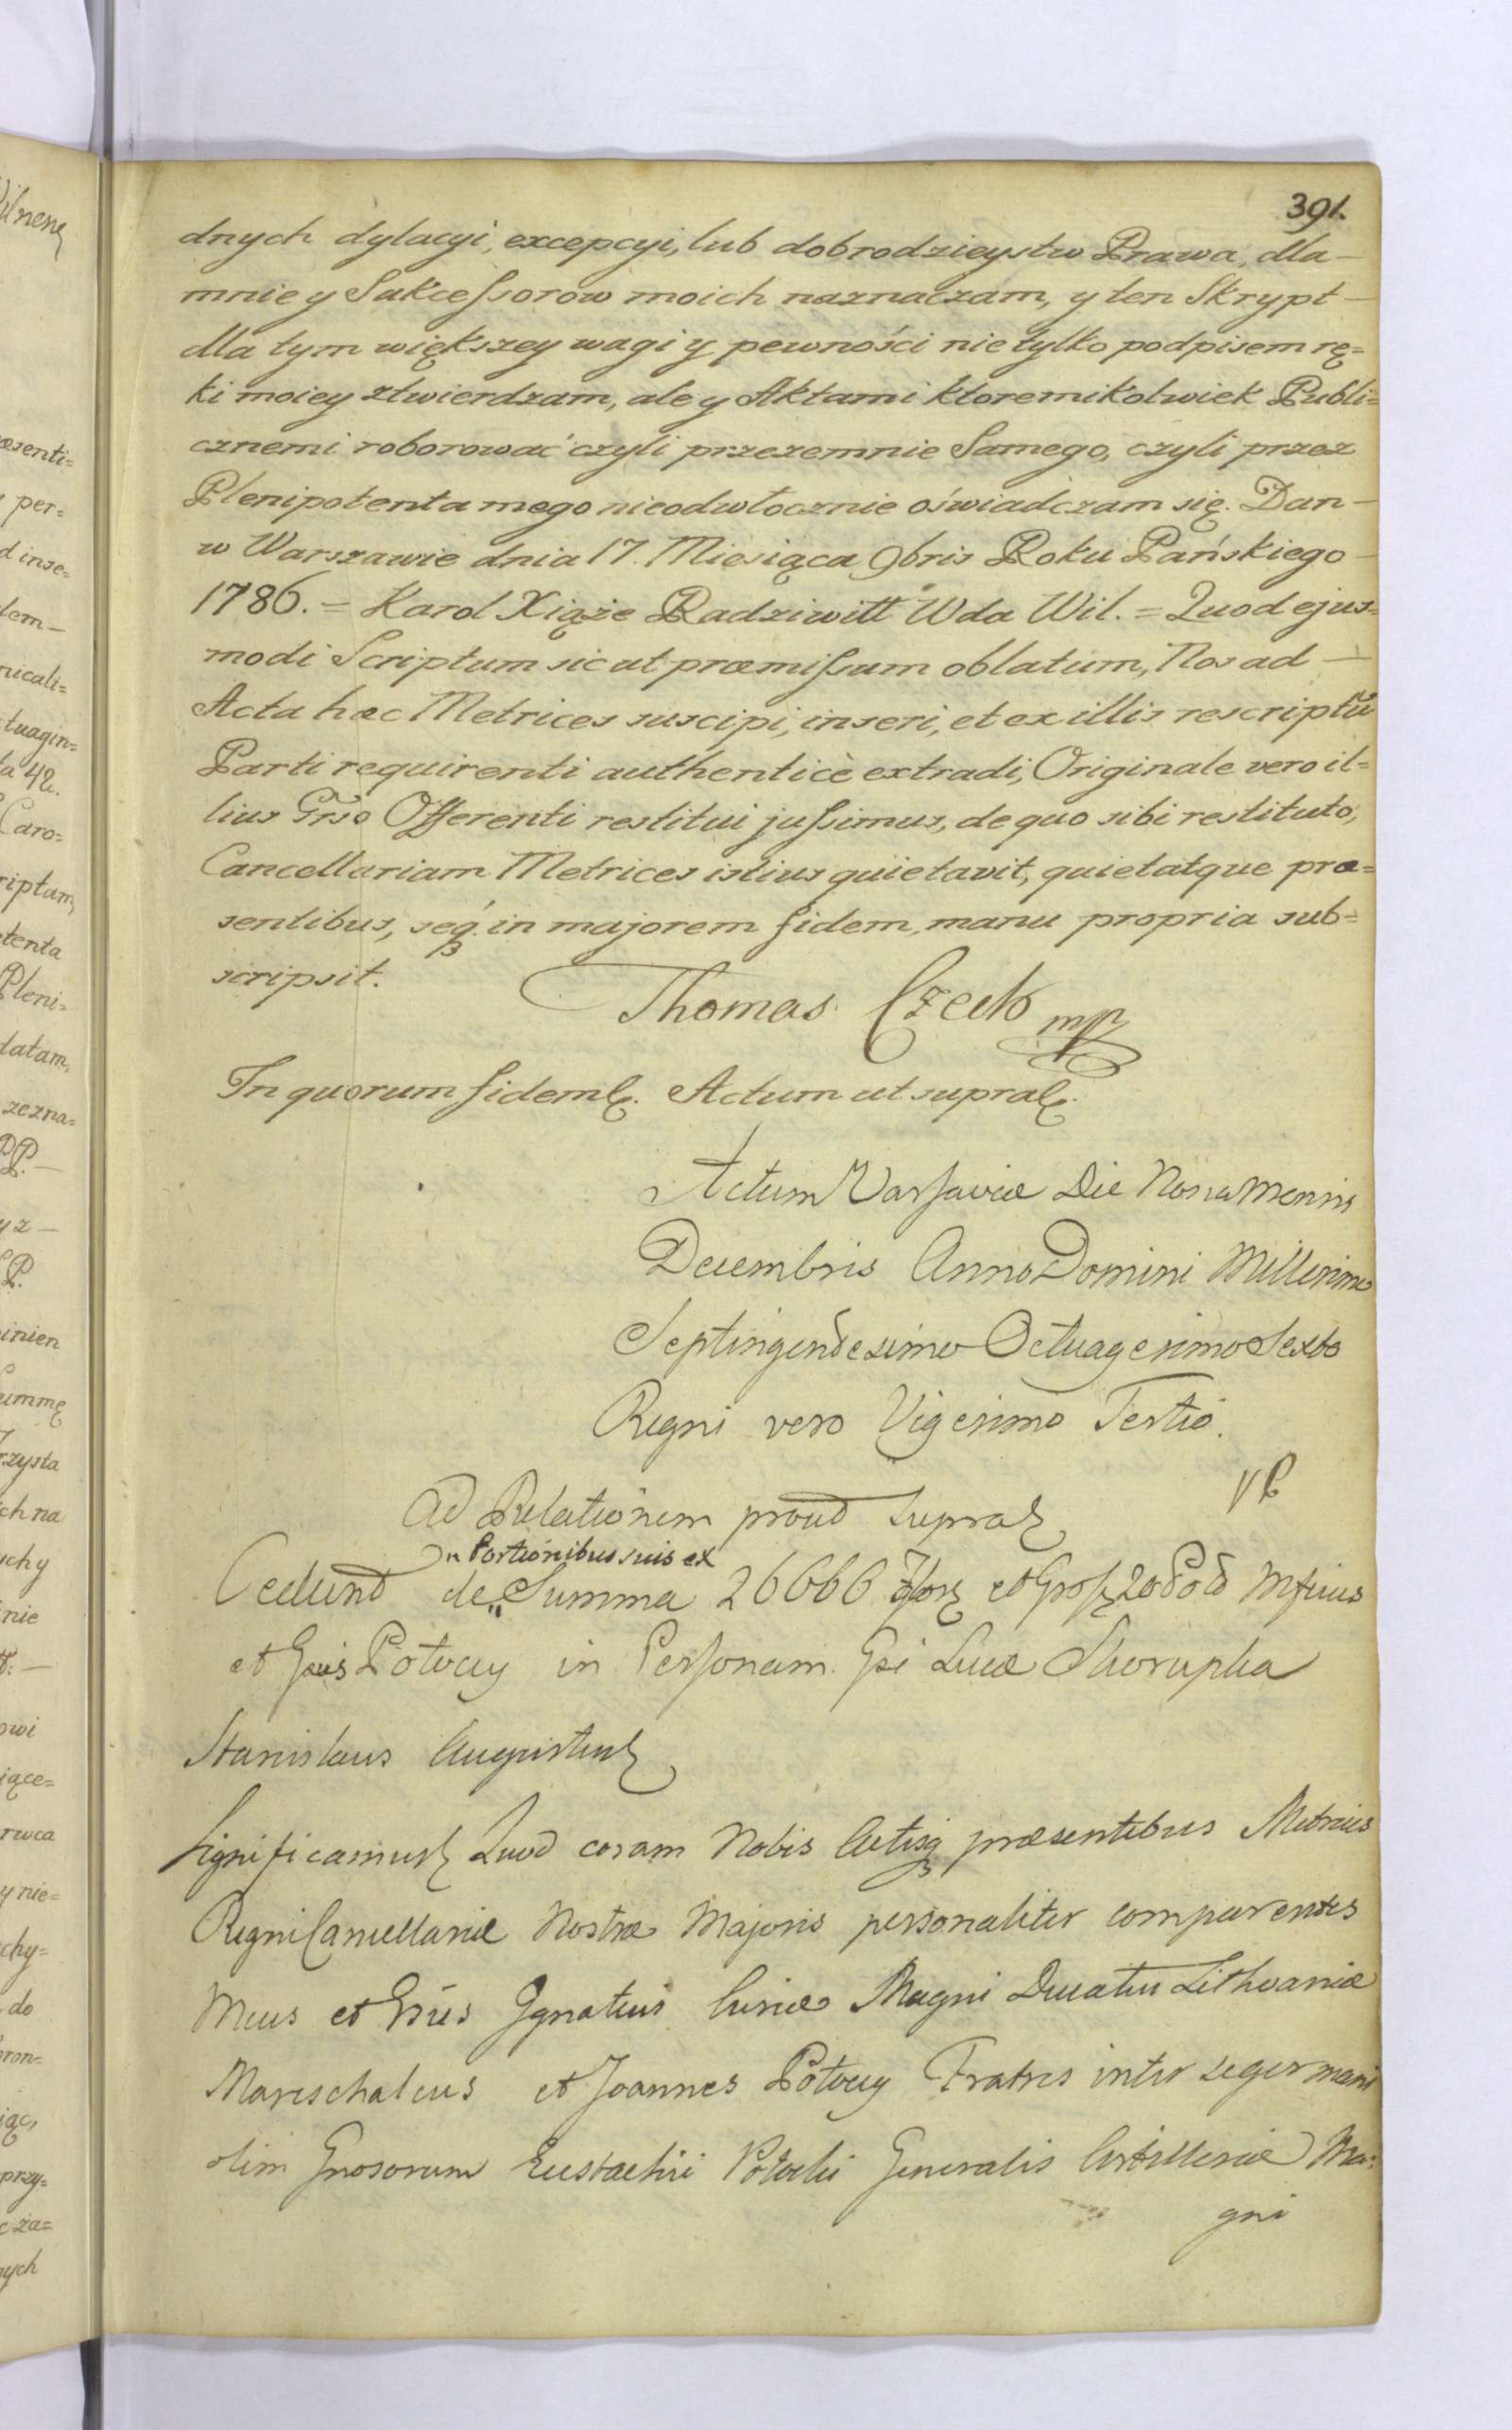 391.
dnych dylacyi, excepcyi, lub dobrodzieystw Prawa, dla —
mnie y Sukceſsorow moich naznaczam, y ten Skrypt —
dla tym większey wagi y pewności nie tylko podpisem rę=
ki moiey ztwierdzam, ale y Aktami ktoremikolwiek Publi=
cznemi roborować czyli przezemnie Samego, czyli przez
Plenipotenta mego nieodwłocznie oświadczam się. Dan —
w Warszawie dnia 17. Miesiąca 9bris Roku Pańskiego —
1786. = Karol Xiąże Radziwiłł Wda Wil. = Quod ejus=
modi Scriptum sic ut præmiſsum oblatum, Nos ad —
Acta hæc Metrices suscipi, inseri, et ex illis rescriptũ
Parti requirenti authenticè extradi, Originale vero il=
lius Gnso Offerenti restitui juſsimus, de quo sibi restituto,
Cancellariam Metrices istius quietavit, quietatque præ=
sentibus, seq́ in majorem fidem, manu propria sub=
scripsit.
Thomas Czeck mp
In quorum fidem &. Actum ut supra &.
Actum Varſaviæ Die Nona Mensis
Decembris Anno Domini Millesimo
Septingentesimo Octuagesimo Sexto
Regni vero Vigesimo Tertio.
VP
Ad Relationem prout supra &
In Portionibus suis ex
Cedunt de Summa 26666 et Groſs 20
et Potoccy in Perſonam Gsi Lucæ Skorupka
Stanislaus Augustus &
Significamus & Quod coram Nobis Actisq præsentibus Metrices
Regni Cancellariæ Nostræ Majoris personaliter comparentes
et Ignatius Curiæ Magni Ducatus Lithvaniæ
Mareschalcus et Joannes Potoccy Fratres inter se germani
olim Gnosorum Eustachii Potocki Generalis Artilleriæ Ma=
gni